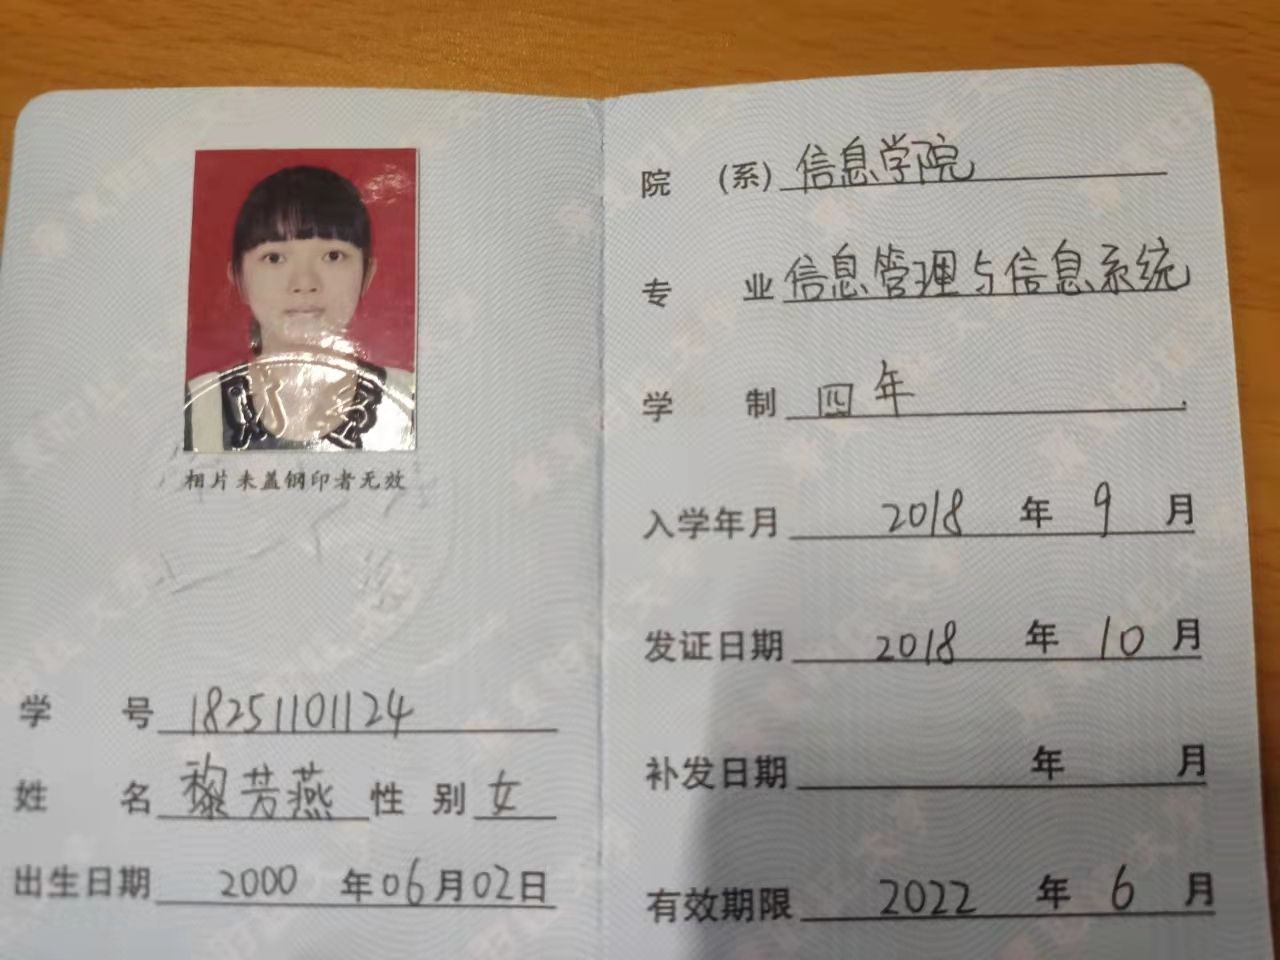 相片未盖钢印者无效
学 号 18251101124
姓 名 黎芳燕 性 别 女
出生日期 2000 年 06 月 02 日
院 (系) 信息学院
专 业 信息管理与信息系统
学 制 四年
入学年月 2018 年 9 月
发证日期 2018 年 10 月
补发日期 年 月
有效期限 2022 年 6 月